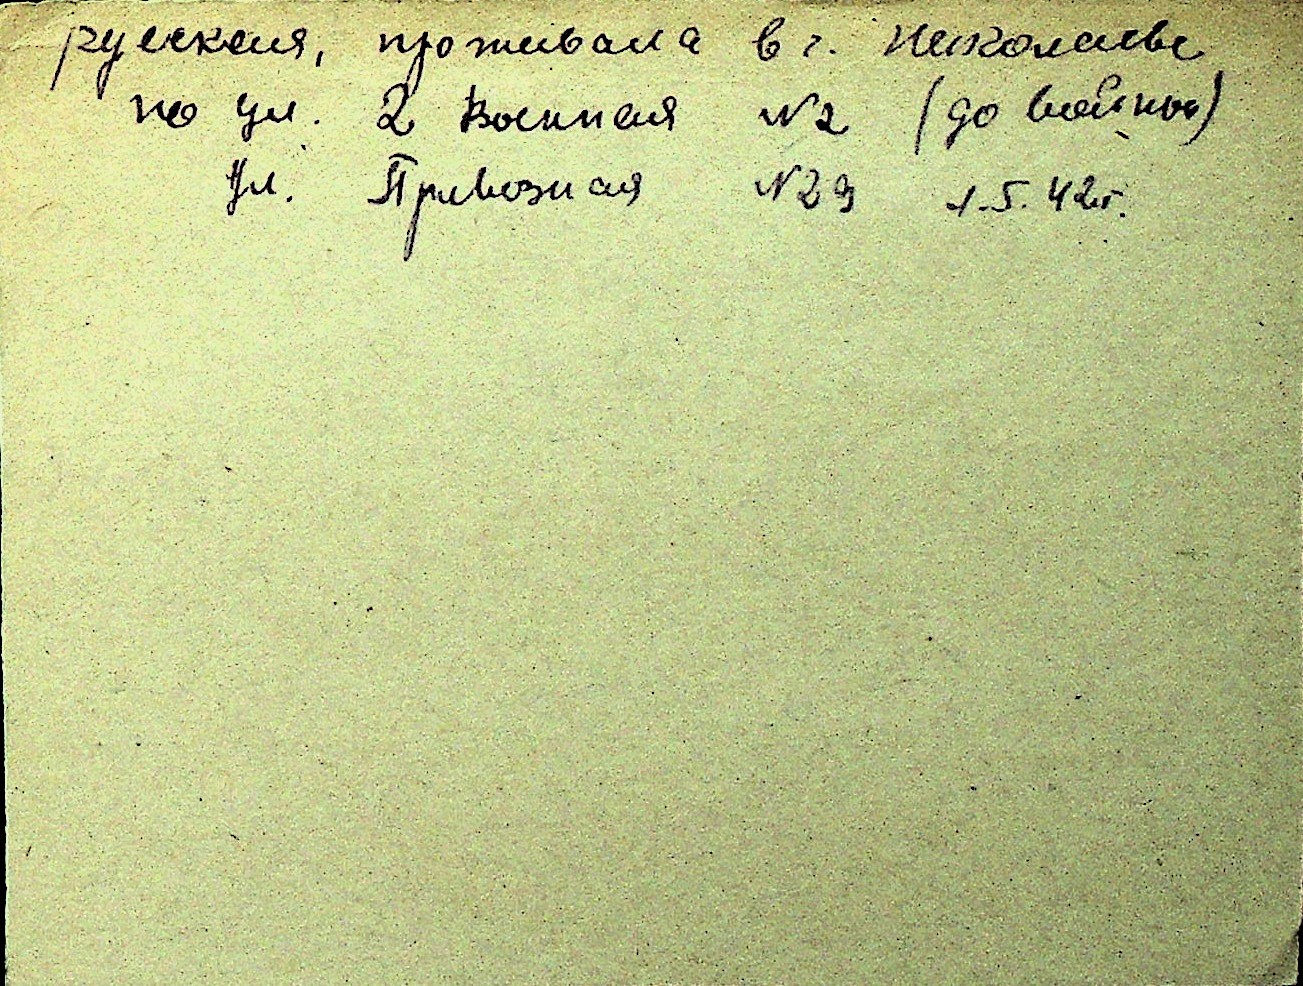 русская, проживала в г. Николаеве
по ул. 2 Военная №2 (до войны)
ул. Привозная №29 1.5.42г.